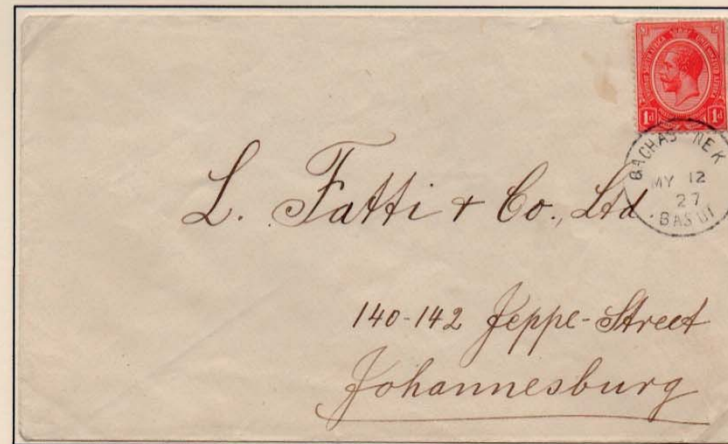 1d 1d
QACHAS NEK
MY 12
27
L. Fatti & Co., Ltd
140-142 Jeppe-Street
Johannesburg